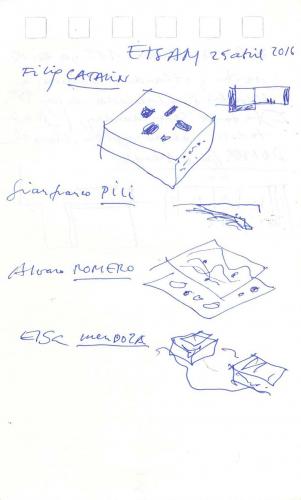 ETSAM 25 abril 2016
Filip CATALIN
Gianfranco PILI
Alvaro ROMERO
Elsa MENDOZA